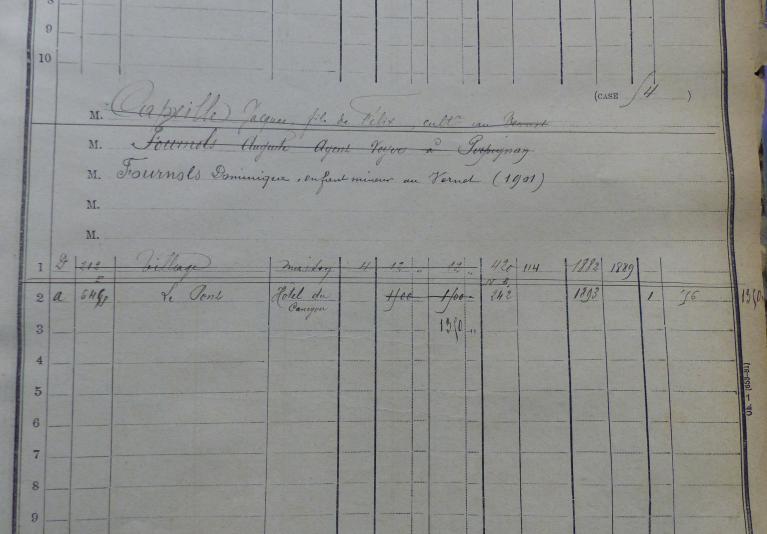 8
9
10
(CASE 54 )
M. Capeille Jacques, fils de Félix, cultr au Vernet
M. Fournols Auguste Agent Voyer à Perpignan
M. Fournols Dominique, enfant mineur au Vernet (1901)
M.
M.
1 D 212 Village maison 4 12 12 420 114 1882 1889
2 a 648 Le Pont Hôtel du 242 1893 1 76 1350
Canigou
3 1350
4
5
6
7
8
9